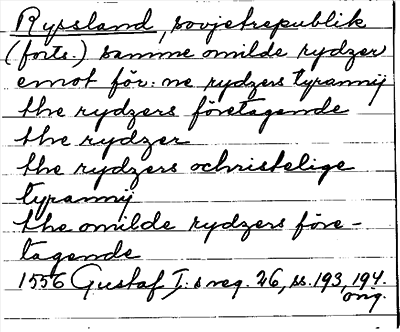 Ryssland, sovjetrepublik
(forts.) samme omilde rydzer
emot för:ne rydzers tyrannij
the rydzers företagende
the rydzer
the rydzers ochristelige
tyrannij
the omilde rydzers före-
tagende
1556 Gustaf I:s reg. 26, ss. 193, 194.
öng.